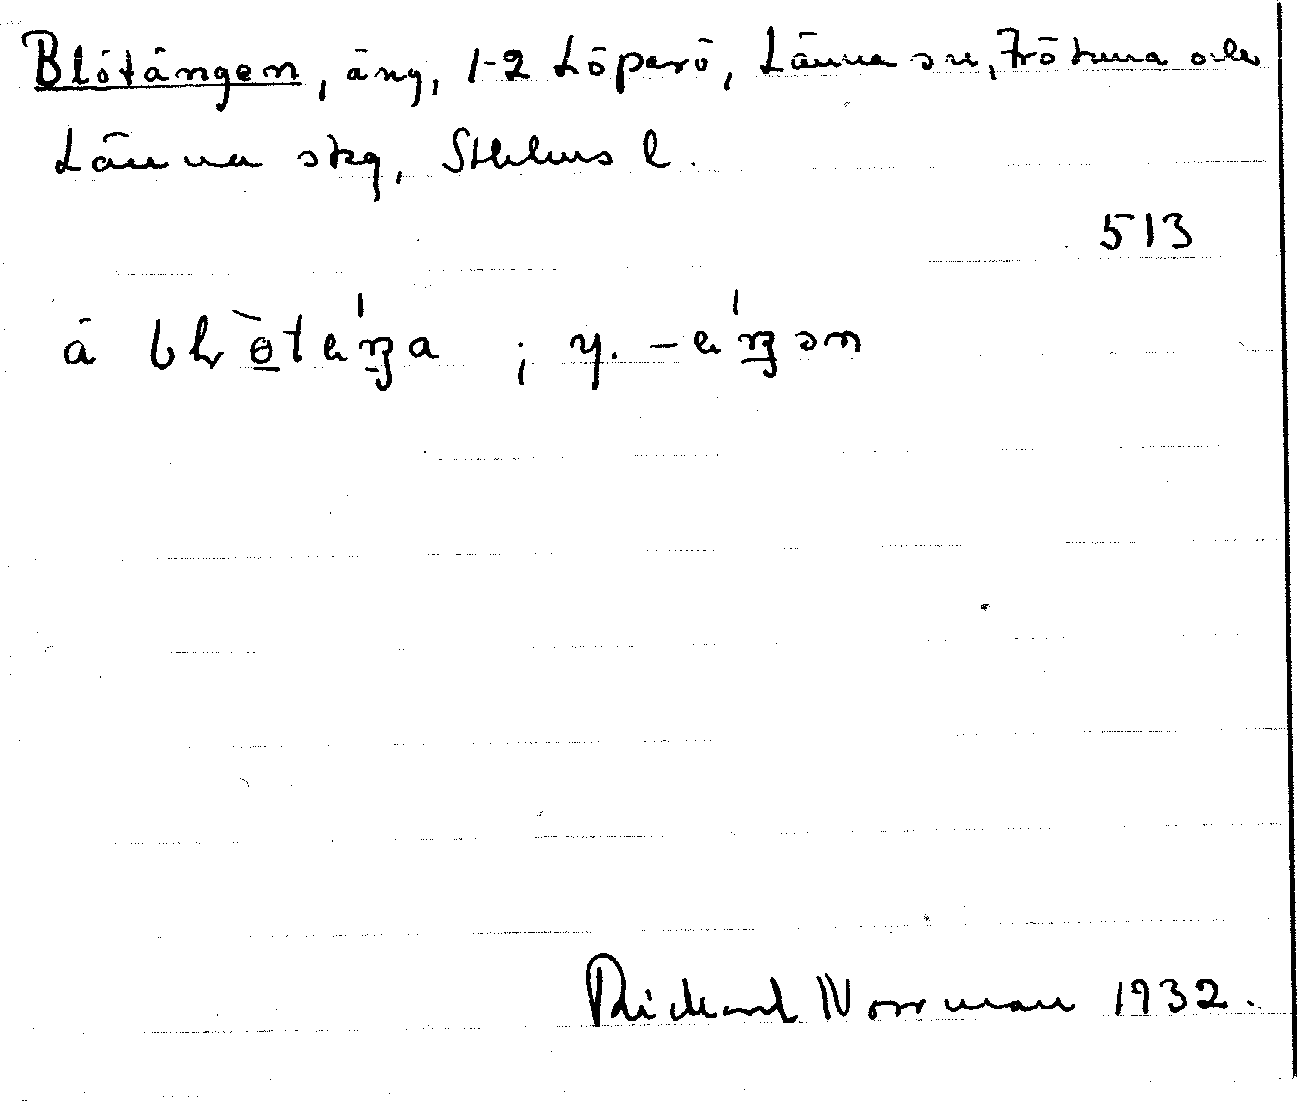 Blötängen, äng, 1-2 Löparö, Länna sn, Frötuna och
Länna skg, Sthlms l.
513
å
; y.
Rickard Norrman 1932.